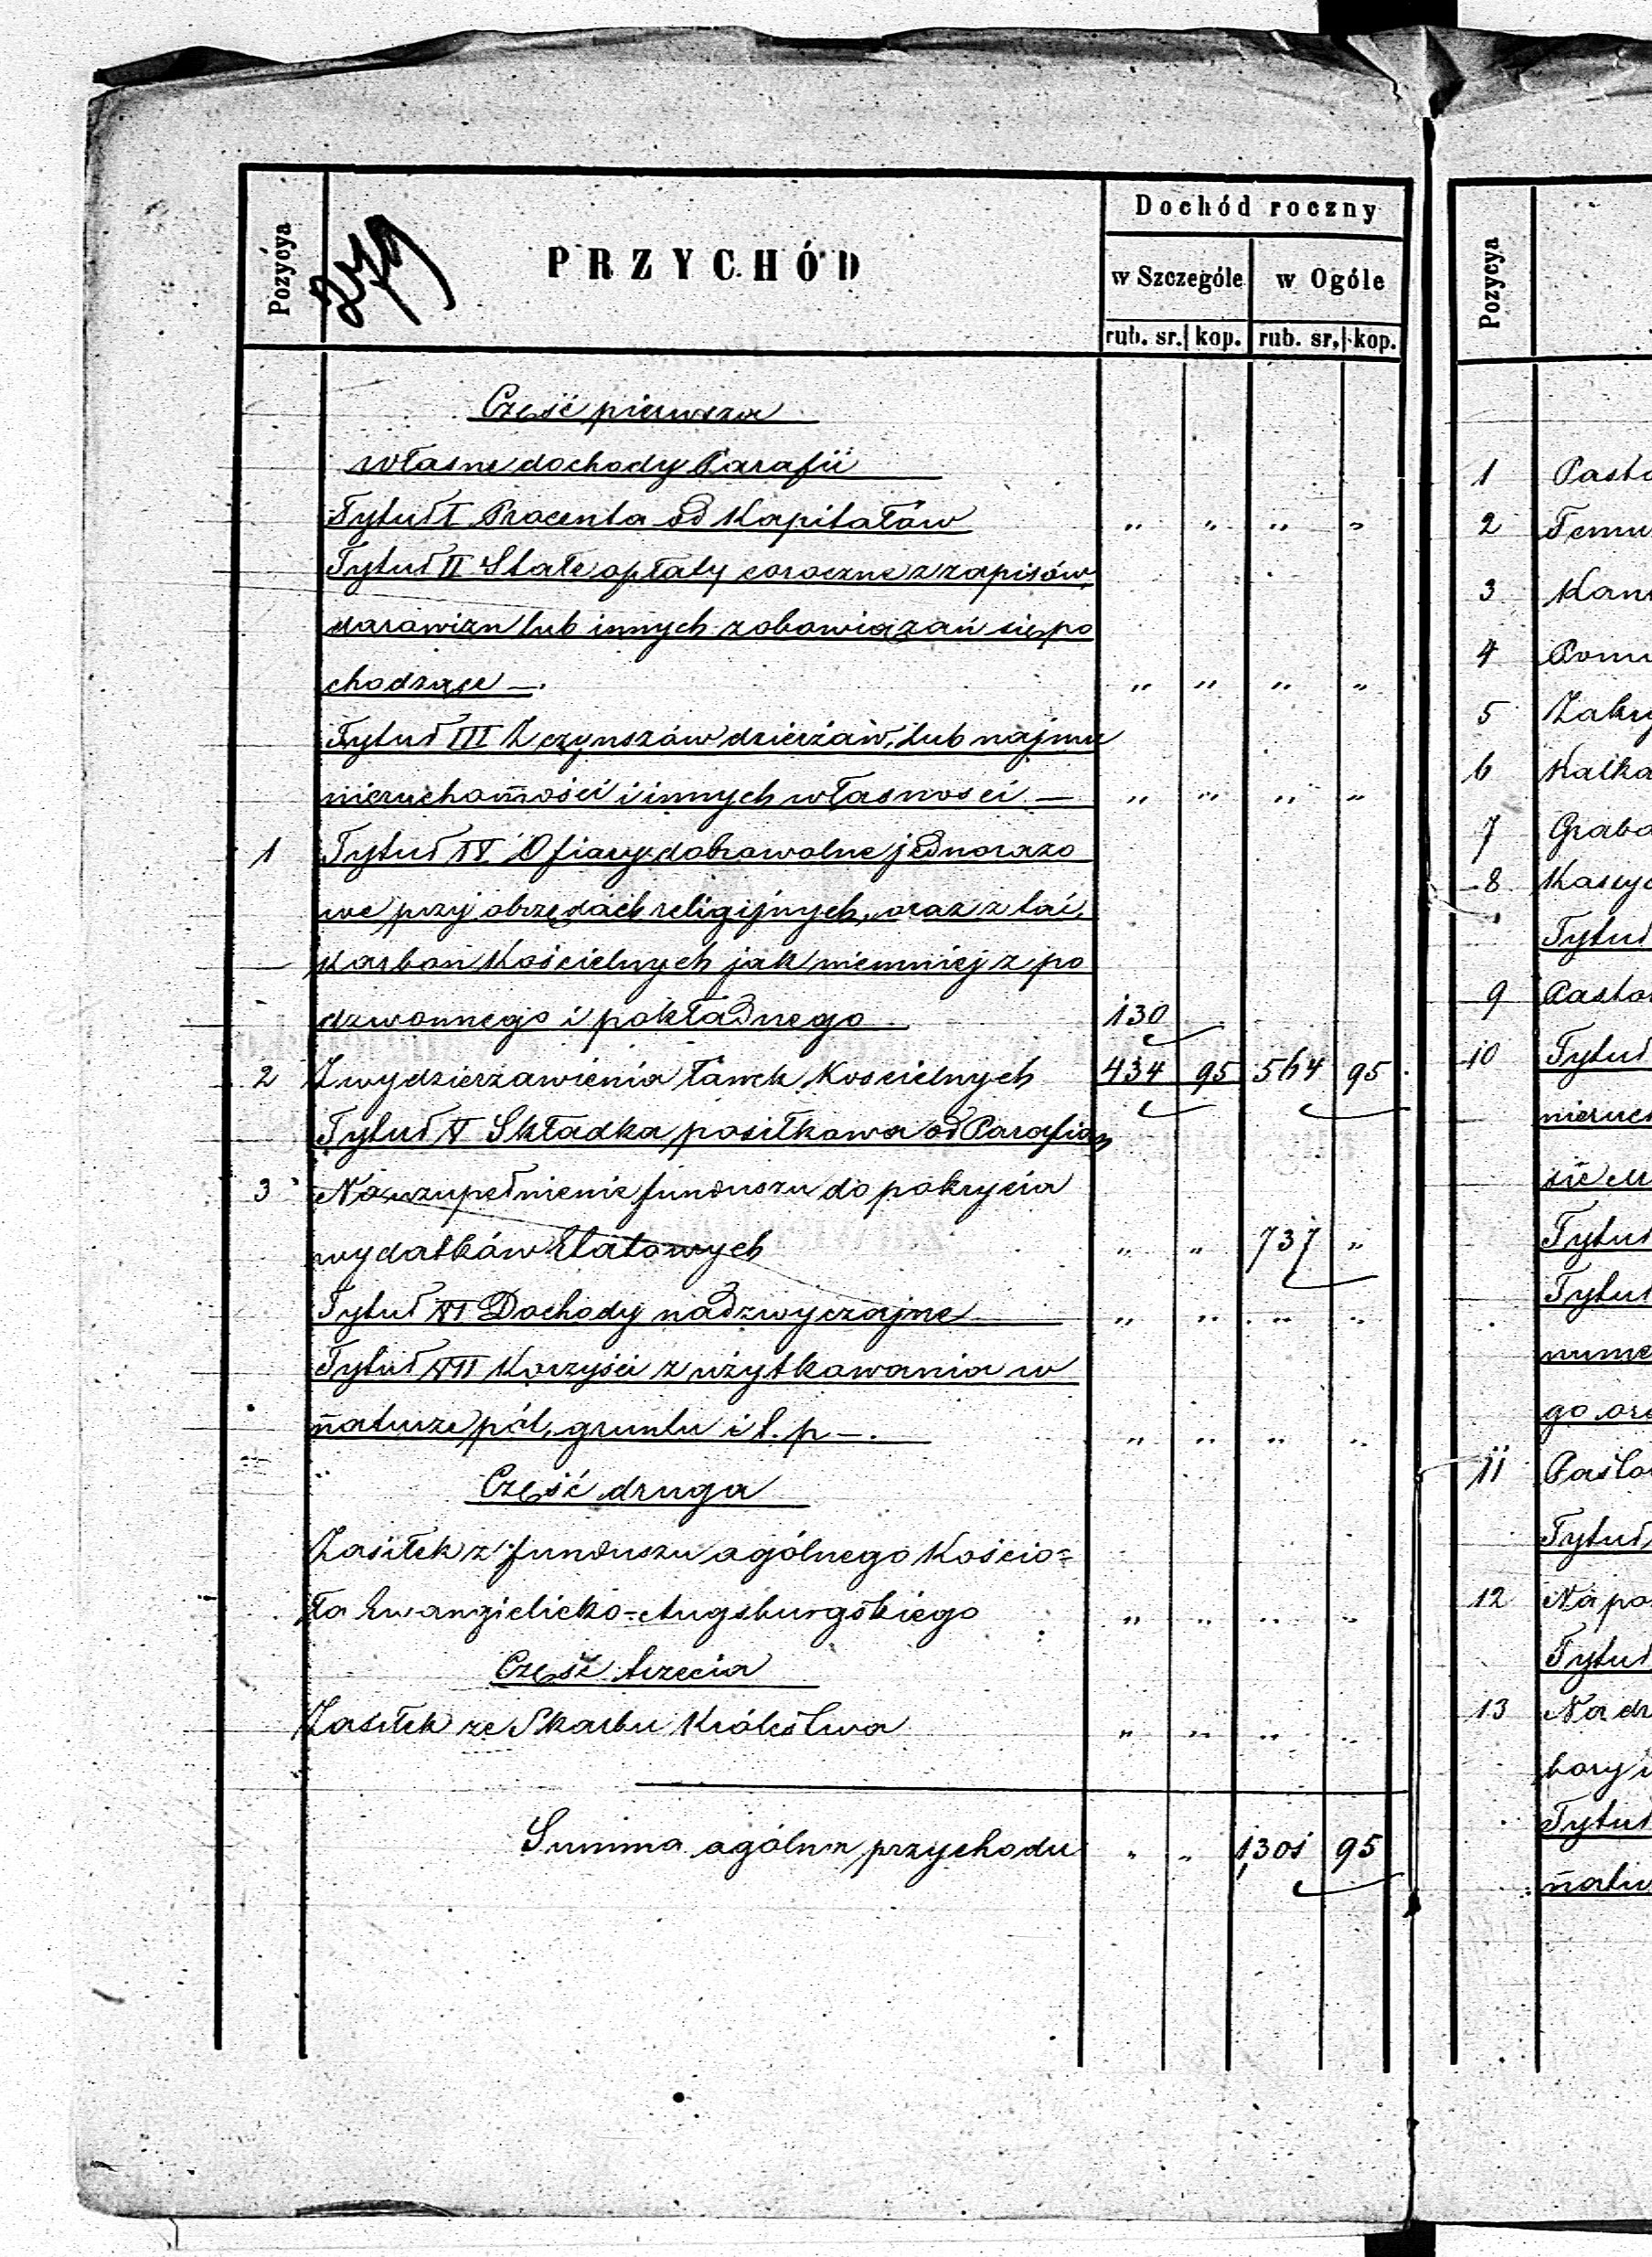 Dochód roczny
Pozycya
279
PRZYCHÓD
w Szczególe w Ogóle
rub. sr. kop. rub. sr. kop.
Część pierwsza
własne dochody Parafii
Tytuł I Procenta od Kapitałów " " " "
Tytuł II Stałe opłaty coroczne z zapisów
darowizn lub innych zobowiązań się po
chodzące —. " " " "
Tytuł III Z czynszów dzierżaw, lub najmu
nieruchomości i innych własności — " " " "
1 Tytuł IV Ofiary dobrowolne jednorazo
we przy obrzędach religijnych, oraz z tac,
karbon Kościelnych jak niemniej z po
dzwonnego i pokładnego 130
2 Z wydzierżawienia ławek Kościelnych 434 95 564 95
Tytuł V Składka posiłkowa od Parafian
3 Na uzupełnienie funduszu do pokrycia
wydatków Etatowych " " 737 "
Tytuł VI Dochody nadzwyczajne " " " "
Tytuł VII Korzyści z użytkowania w
naturze pól, gruntu i t. p —. " " " "
Część druga
Zasiłek z funduszu ogólnego Kościo=
ła Ewangielicko=Augsburgskiego " " " "
Część trzecia
Zasiłek ze Skarbu Królestwa " " " "
Summa ogólna przychodu " " 1301 95
Pozycya
1
2
3
4
5
6
7
8
Tytuł
9
10 Tytuł
Tytuł
Tytuł
11
Tytuł
12 Na
Tytuł
13 Na
Tytuł